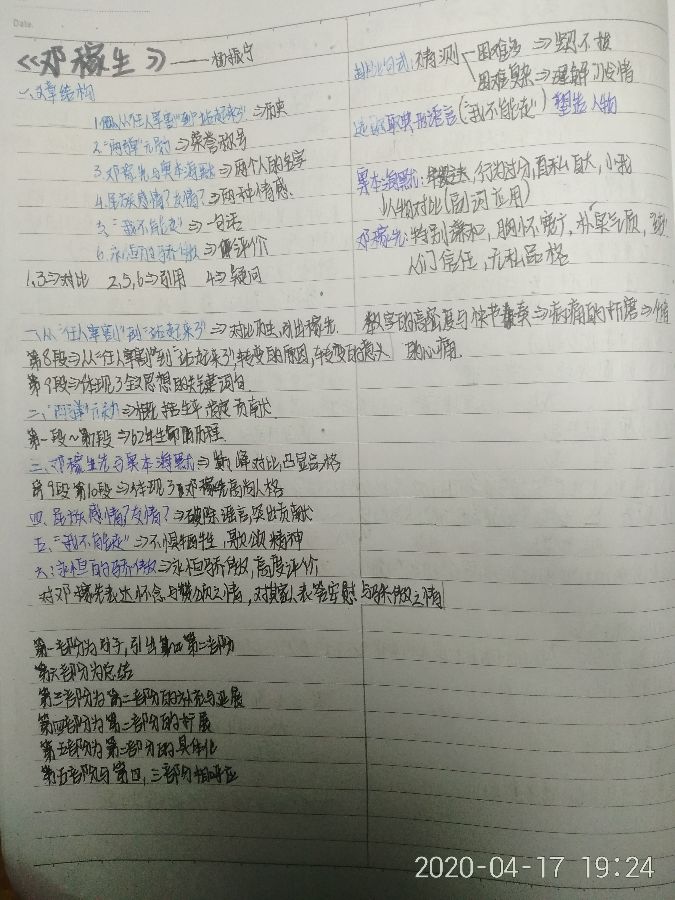 Date.
《邓稼先》——杨振宁
一、文章结构
1.从"任人宰割"到"站起来了"⇒历史
2."两弹"元勋⇒荣誉称号
3.邓稼先与奥本海默⇒两个人的名字
4.民族感情?友情?⇒两种情感.
5."我不能走"⇒一句话
6.永恒的骄傲⇒评价
1,3⇒对比 2,5,6⇒引用 4⇒疑问
一、从"任人宰割"到"站起来了"⇒对比历史,引出稼先.
第8段⇒从"任人宰割"到"站起来了",转变的原因,转变的意义
第9段⇒体现了全文思想的关键词句.
二、"两弹"元勋⇒概括生平 贡献
第一段~第7段⇒62年生命的历程.
三、邓稼先与奥本海默⇒对比,凸显品格
第9段第10段⇒体现了邓稼先高尚人格
四、民族感情?友情?⇒破除谣言,突出贡献
五、"我不能走"⇒不惧牺牲,歌颂精神
六:永恒的骄傲⇒永恒骄傲,高度评价
对邓稼先表达怀念与赞颂之情,对其家人表答安慰与骄傲之情
第一部分为引子,引出第二部分
第六部分为总结
第三部分为第二部分的补充与延展
第四部分为第二部分的扩展
第五部分为第二部分的具体化
第五部分与第四,三部分相呼应
排比句式:猜测
困难多⇒坚韧不拔
困难复杂⇒理解力惊情
典形语言("我不能走")塑造人物
奥本海默:行为过分,自私自大,小我
人物对比(副词应用)
邓稼先:特别谦和,胸怀宽方,朴实气质,
人们信任,无私品格
数字的高强度与快节奏⇒病痛的折磨⇒情
的心痛.
2020-04-17 19:24